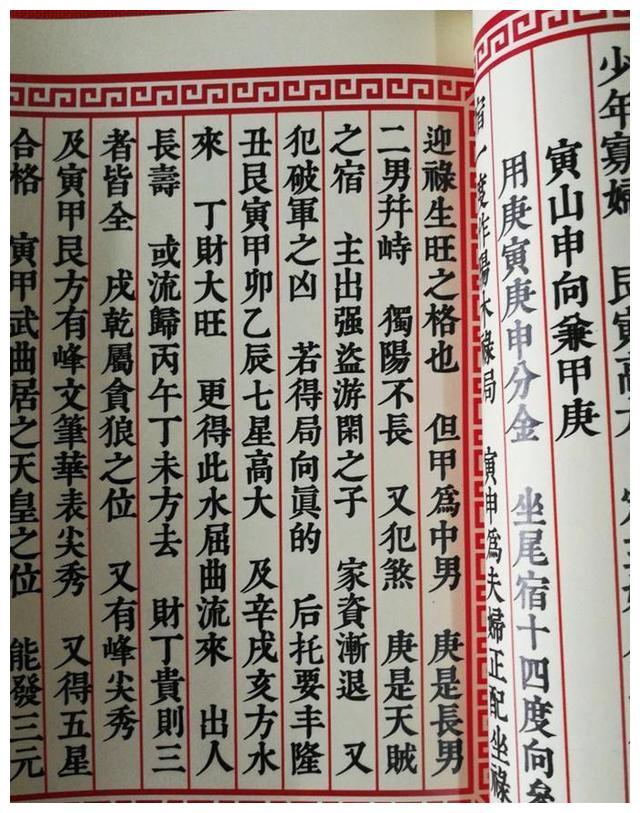 少年寡婦　艮寅高大
寅山申向兼甲庚
用庚寅庚申分金　坐尾宿十四度向參
宿一度作陽水祿局　寅申爲夫婦正配坐祿
迎祿生旺之格也　但甲爲中男　庚是長男
二男幷峙　獨陽不長　又犯煞　庚是天賊
之宿　主出强盜游閑之子　家資漸退　又
犯破軍之凶　若得局向眞的　后托要丰隆
丑艮寅甲卯乙辰七星高大　及辛戌亥方水
來　丁財大旺　更得此水屈曲流來　出人
長壽　或流歸丙午丁未方去　財丁貴則三
者皆全　戌乾屬貪狼之位　又有峰尖秀
及寅甲艮方有峰文筆華表尖秀　又得五星
合格　寅甲武曲居之天皇之位　能發三元